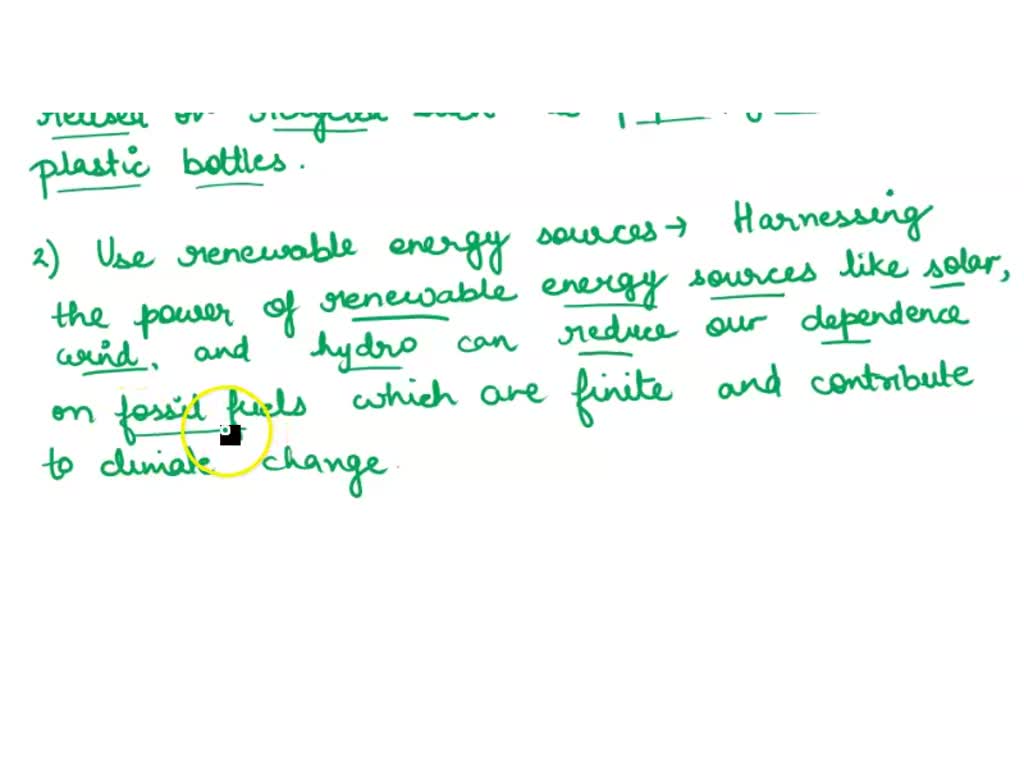 plastic bottles.
2) Use renewable energy sources → Harnessing
the power of renewable energy sources like solar,
wind, and hydro can reduce our dependence
on fossil fuels which are finite and contribute
to climate change